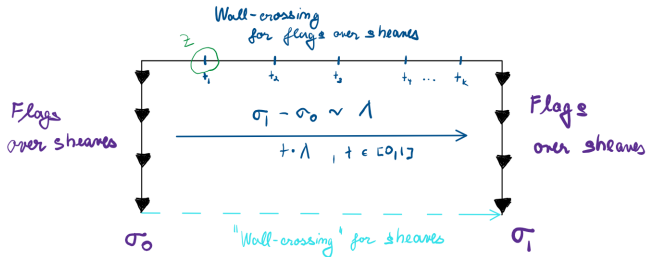 Wall-crossing
for flags over sheaves
Z
t₁ t₂ t₃ t₄ ... tₖ
Flags
over sheaves
σ₁ - σ₀ ~ λ
t·λ , t ∈ [0,1]
Flags
over sheaves
"Wall-crossing" for sheaves
σ₀
σ₁